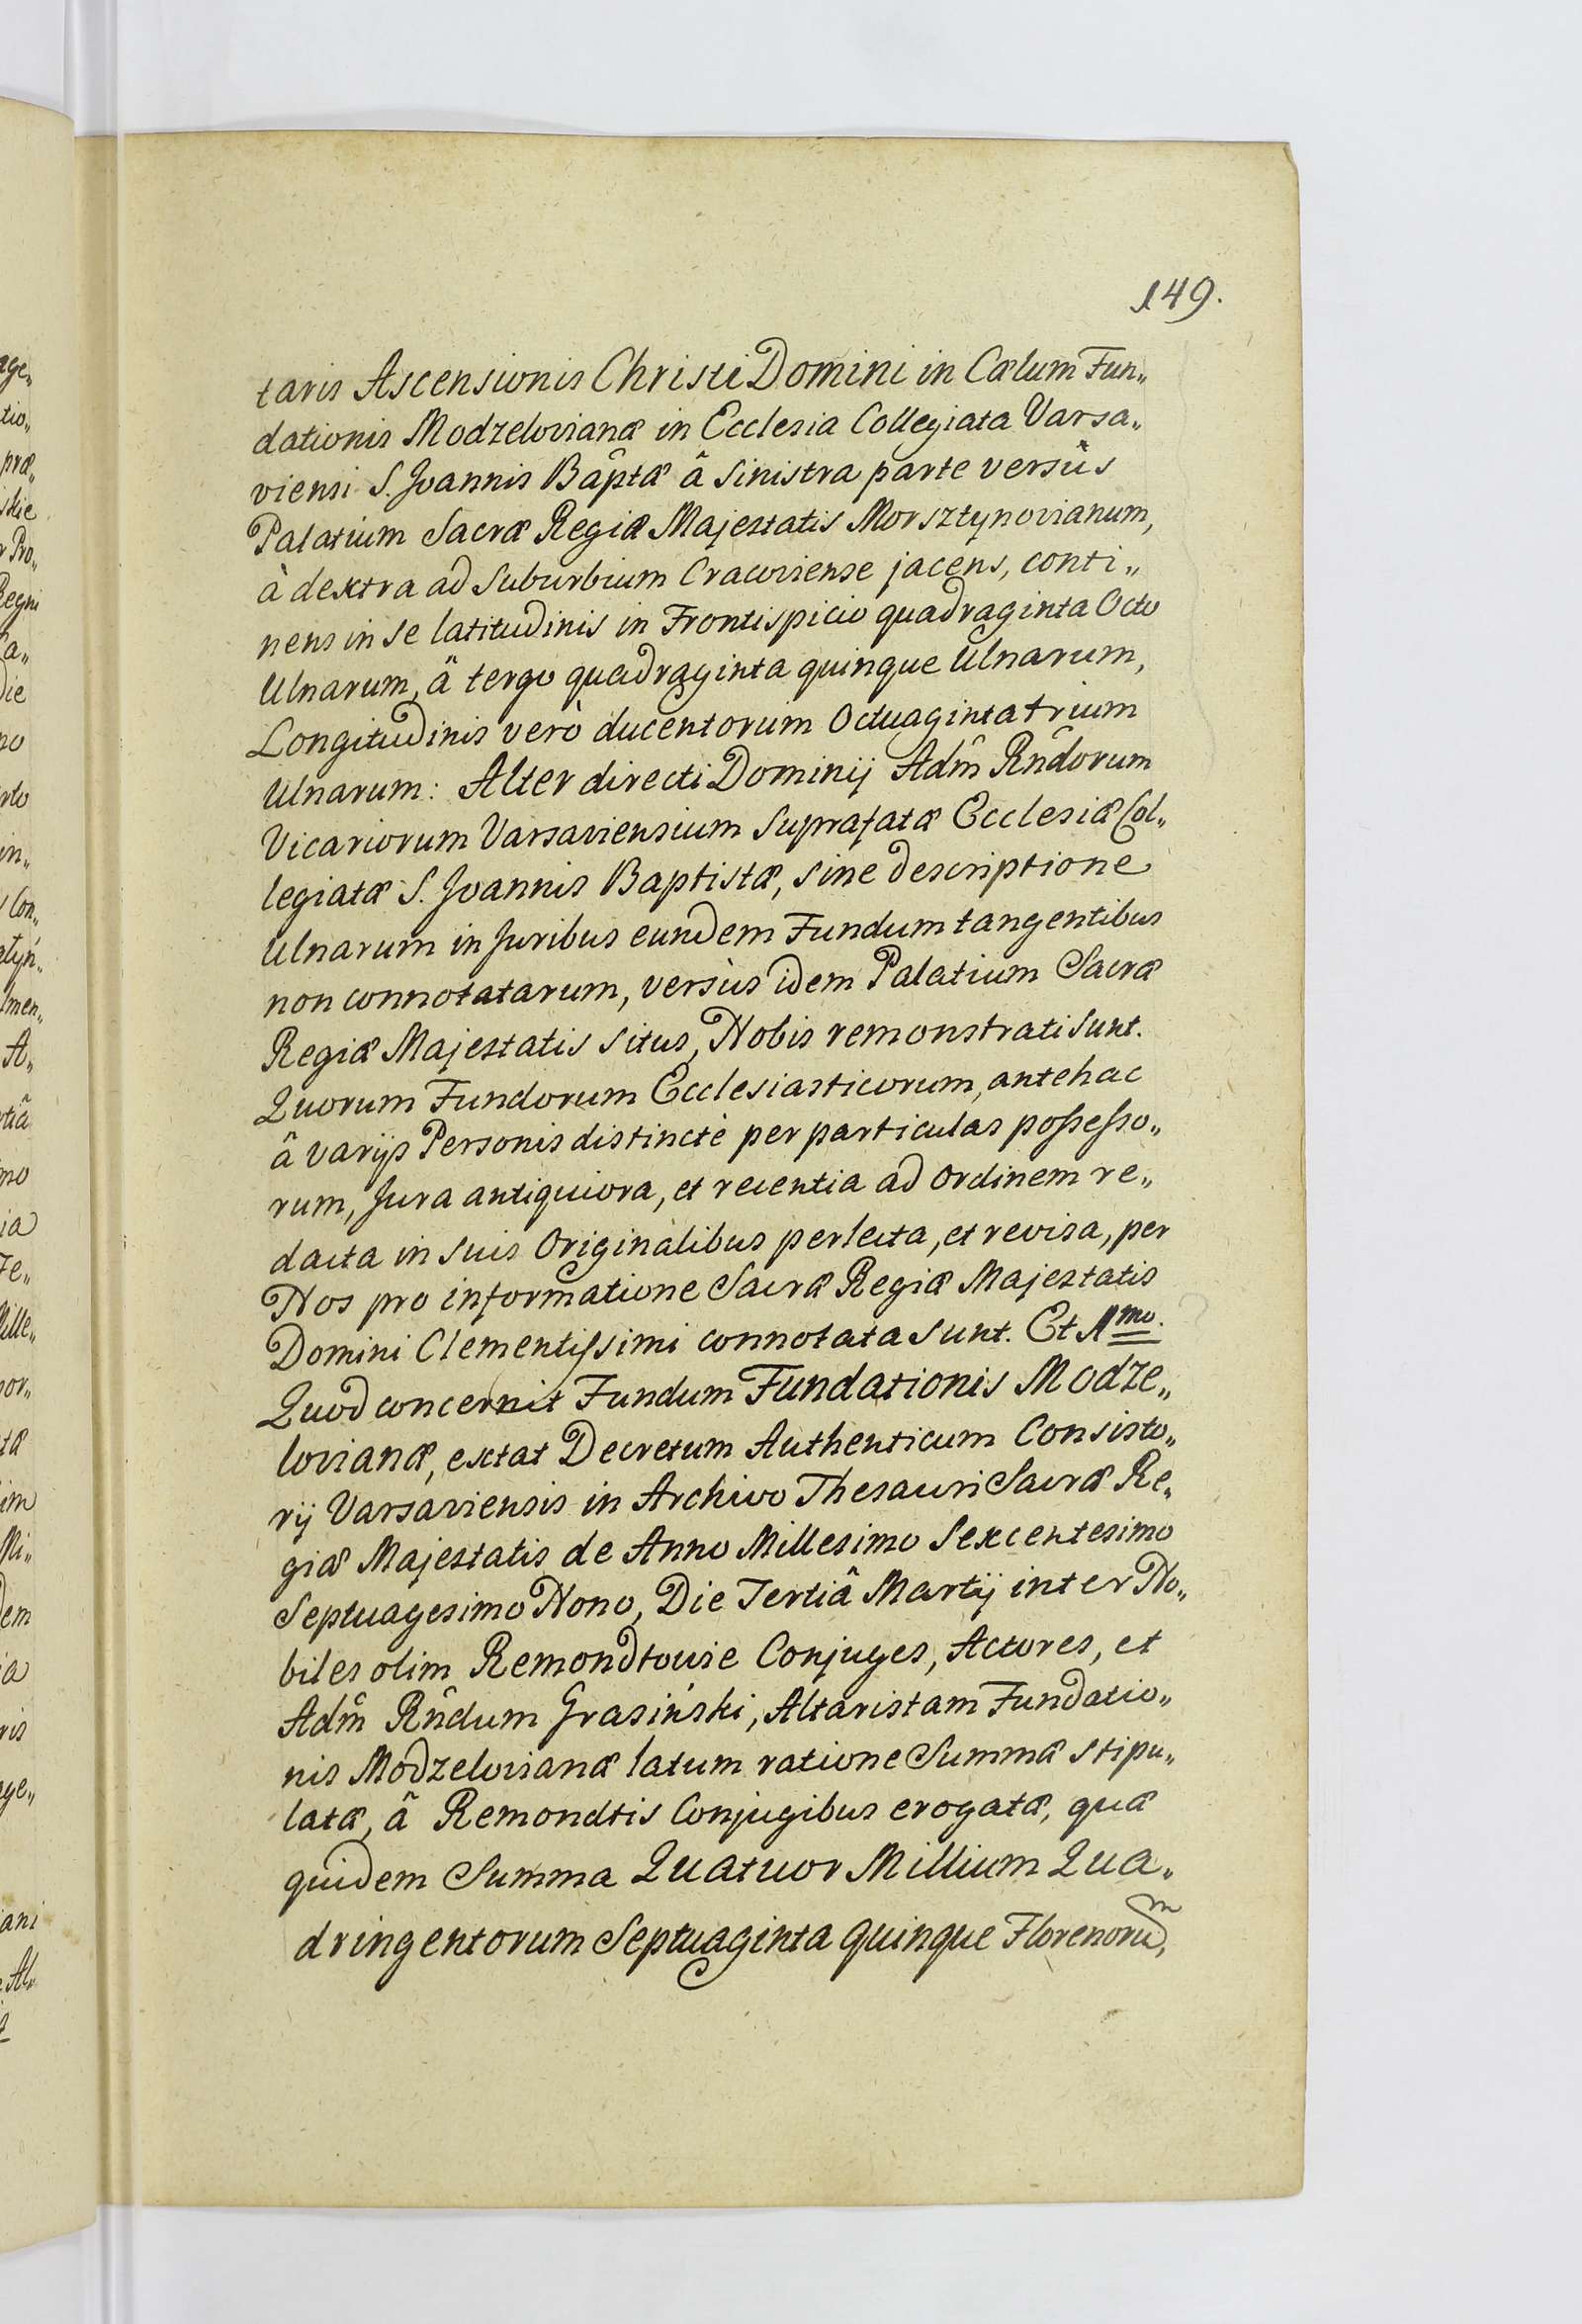 149.
taris Ascensionis Christi Domini in Cælum Fun„
dationis Modzelovianæ in Ecclesia Collegiata Varsa„
viensi S. Joannis Bap̂tæ â sinistra parte versùs
Palatium Sacræ Regiæ Majestatis Morsztynovianum,
à dextra ad Suburbium Cracoviense jacens, conti„
nens in se latitudinis in Frontispicio quadraginta Octo
Ulnarum, â tergo quadraginta quinque Ulnarum,
Longitudinis verò ducentorum Octuaginta trium
Ulnarum: Alter directi Dominij Adm̂ Rn̂dorum
Vicariorum Varsaviensium suprafatæ Ecclesiæ Col„
legiatæ S. Joannis Baptistæ, sine descriptione
Ulnarum in Juribus eundem Fundum tangentibus
non connotatarum, versùs idem Palatium Sacræ
Regiæ Majestatis situs, Nobis remonstrati sunt.
Quorum Fundorum Ecclesiasticorum, antehac
â varijs Personis distinctè per particulas possesso„
rum, Jura antiquiora, et recentia ad Ordinem re„
dacta in suis Originalibus perlecta, et revisa, per
Nos pro informatione Sacræ Regiæ Majestatis
Domini Clementissimi connotata sunt. Et 1mo.
Quod concernit Fundum Fundationis Modze„
lovianæ, extat Decretum Authenticum Consisto„
rij Varsaviensis in Archivo Thesauri Sacræ Re„
giæ Majestatis de Anno Millesimo Sexcentesimo
Septuagesimo Nono, Die Tertiâ Martij inter No„
biles olim Remondtowie Conjuges, Actores, et
Adm̂ Rn̂dum Grasiński, Altaristam Fundatio„
nis Modzelovianæ latum ratione Summæ stipu„
latæ, â Remondtis Conjugibus erogatæ, quæ
quidem Summa Quatuor Millium Qua„
dringentorum Septuaginta quinque Florenorum,